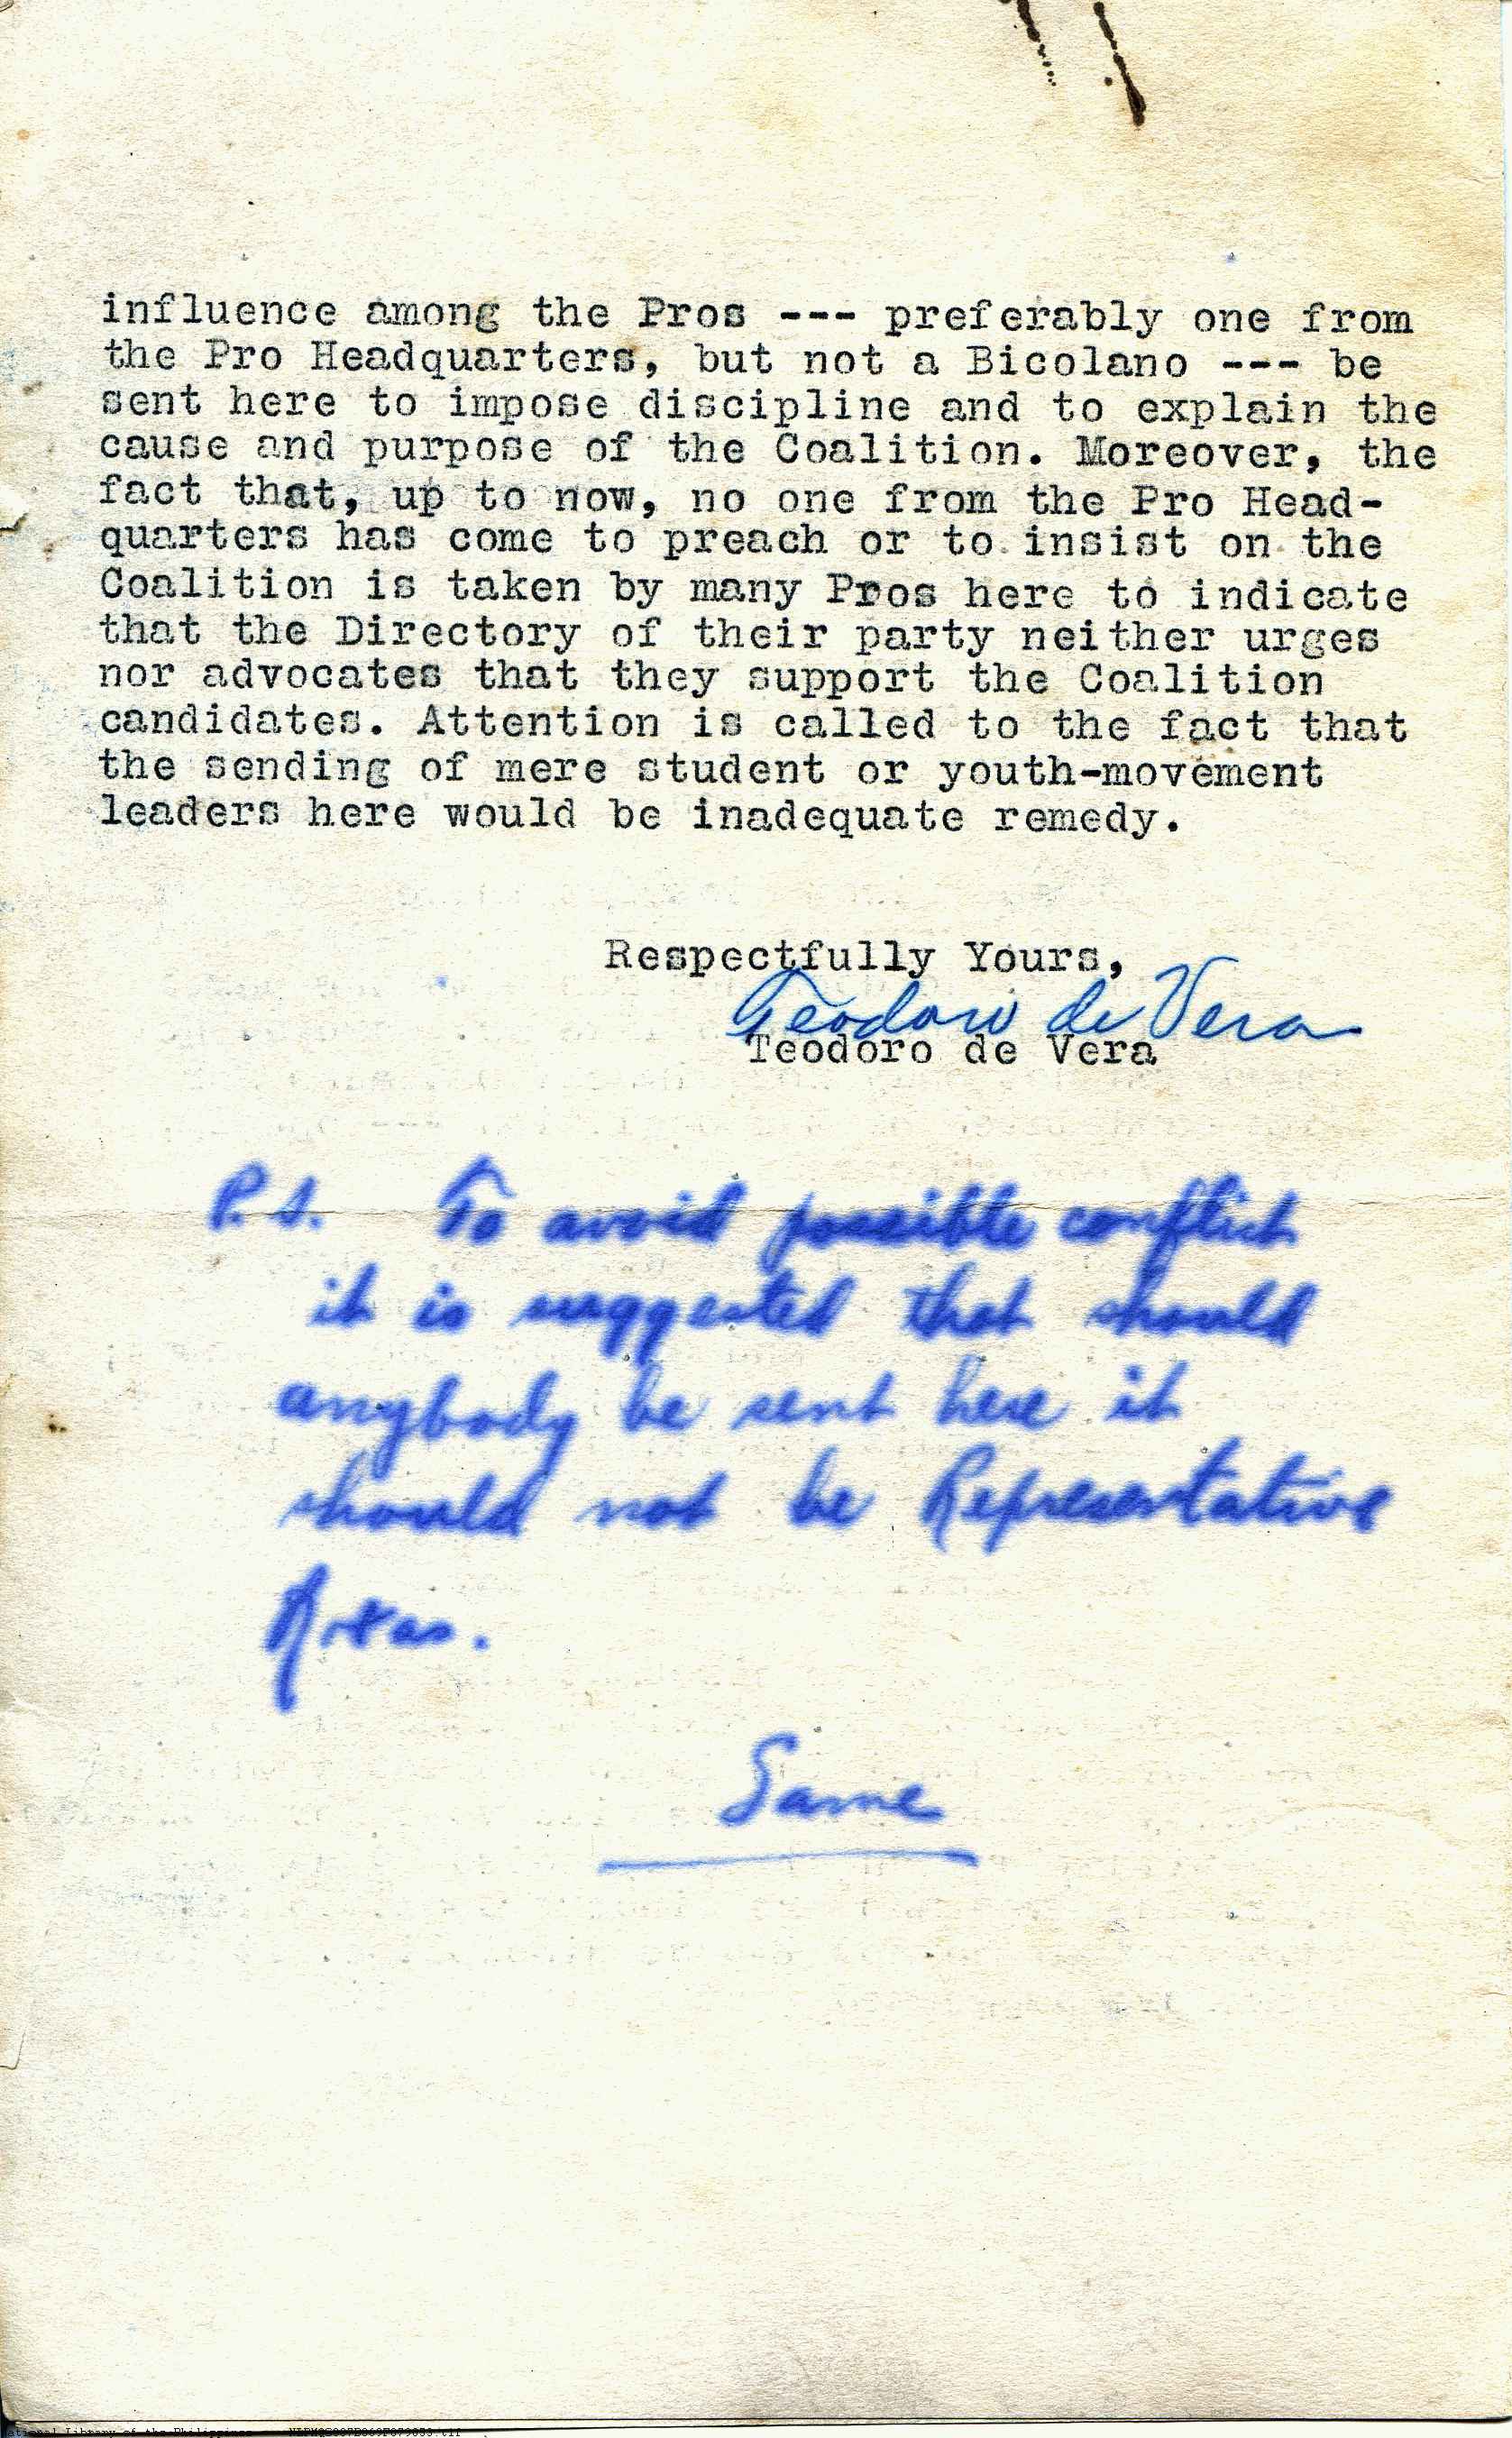 influence among the Pros --- preferably one from
the Pro Headquarters, but not a Bicolano --- be
sent here to impose discipline and to explain the
cause and purpose of the Coalition. Moreover, the
fact that, up to now, no one from the Pro Head-
quarters has come to preach or to insist on the
Coalition is taken by many Pros here to indicate
that the Directory of their party neither urges
nor advocates that they support the Coalition
candidates. Attention is called to the fact that
the sending of mere student or youth-movement
leaders here would be inadequate remedy.
Respectfully Yours,
Teodoro de Vera
Teodoro de Vera
P.S. To avoid possible conflict
it is suggested that should
anybody be sent here it
should not be Representative
Roxas.
Same
National Library of the Philippines